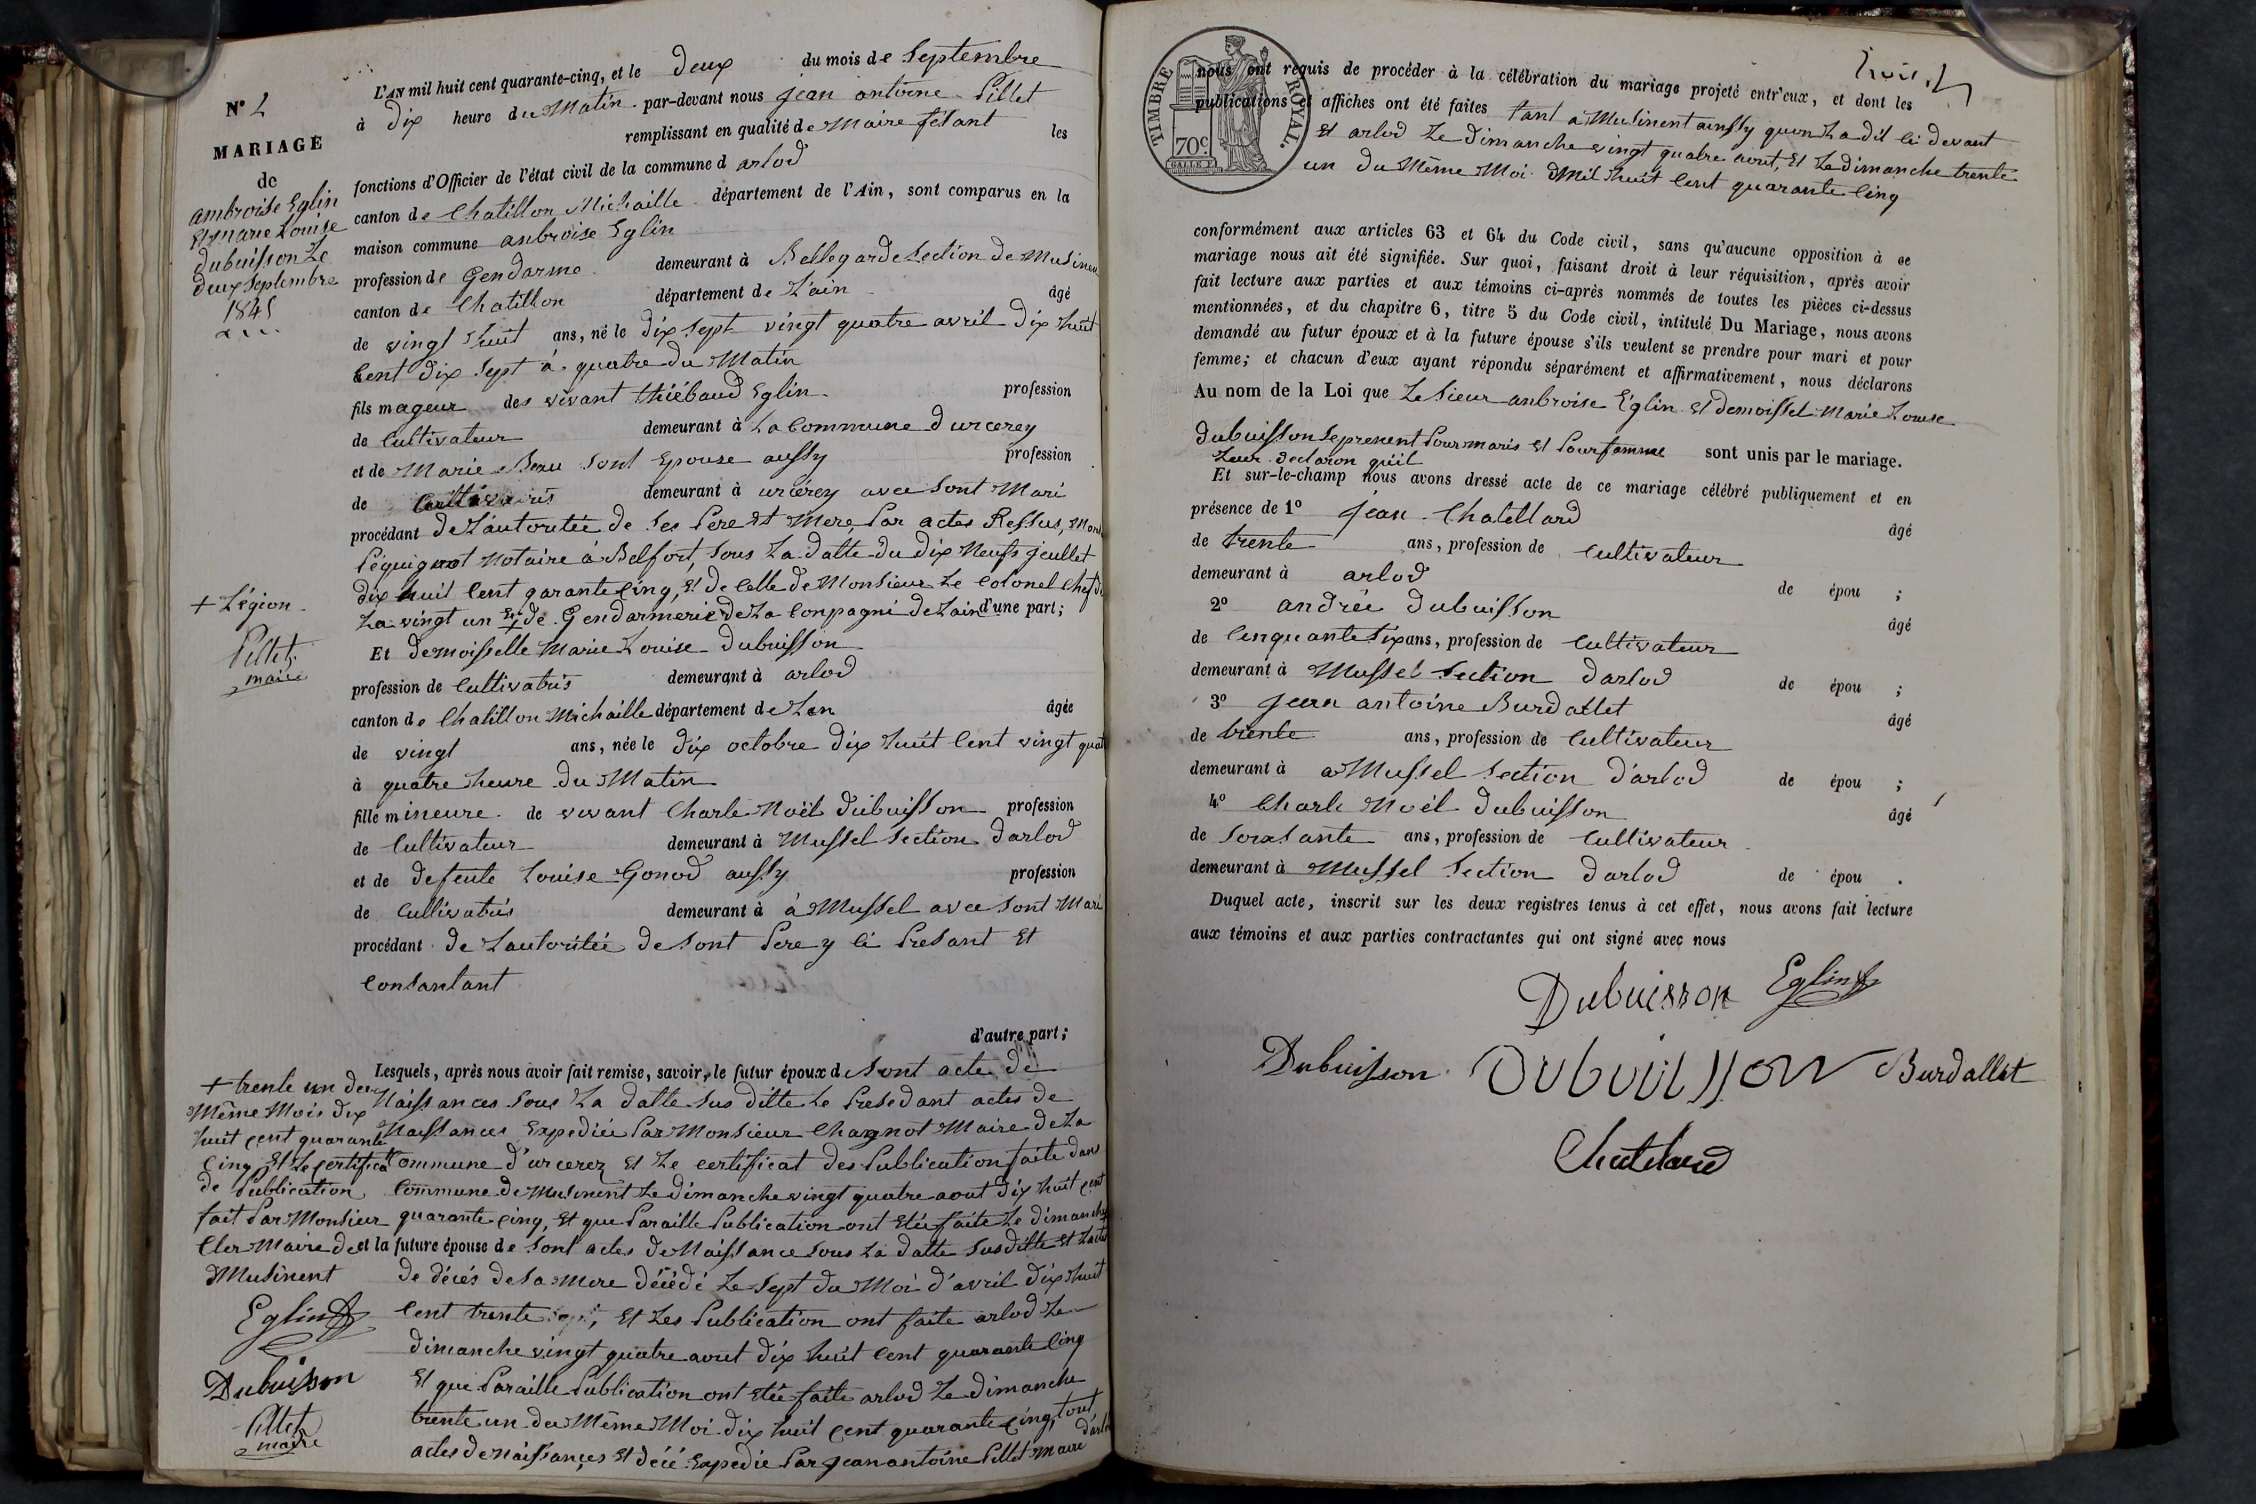 N° 2
MARIAGE
de
ambroise Eglin
et marie Louise
dubuisson Le
deux Septembre
1845
L'AN mil huit cent quarante-cinq, et le deux du mois de Septembre
à dix heure du Matin par-devant nous jean antoine Pillet
remplissant en qualité de Maire fesant les
fonctions d'Officier de l'état civil de la commune d arlod
canton de Chatillon Michaille département de l'Ain, sont comparus en la
maison commune anbroise Eglin
profession de Gendarme demeurant à Bellegarde Section de Musinen
canton de Chatillon département de L'ain âgé
de vingt huit ans, né le dix sept vingt quatre avril dix huit
Cent dix sept à quatre du Matin
fils mageur des vivant thiébaud Eglin profession
de Cultivateur demeurant à La Commune d'urcerey
et de Marie Beau Sont Epouse aussy profession
de demeurant à urcérey avec Sont Mari
procédant de L'autoritée de Ses Pere Et Mere Par actes Ressus,
Péquignot Notaire à Belfort, Sous La datte du dix Neufs jeullet
dix huit Cent garante Cinq, Et de Celle de Monsieur Le Colonel Chef de
La vingt un + de Gendarmerie de La Conpagni de Lain d'une part;
+ Légion
Pillet
maire
Et demoisselle Marie Louise dubuisson
profession de Cultivatris demeurant à arlod
canton de Chatillon Michaille département de Lan âgée
de vingt ans, née le dix octobre dix huit Cent vingt quat
à quatre heure du Matin
fille mineure de vivant Charle Noël dubuisson profession
de Cultivateur demeurant à Mussel Section darlod
et de defente Louise Gonod aussy profession
de Cultivatris demeurant à à Mussel avec Sont Mari
procédant de Lautoritée de Sont Pere y Ci Presant Et
Consantant
d'autre part;
Lesquels, après nous avoir fait remise, savoir, le futur époux de Sont acte de
Naissances Sous La datte Sus ditte Le Presedant actes de
Naissances Expediée Par Monsieur Chagnot Maire de La
Commune d'urcerez Et Le certificat des Publication faite dans
Commune de Musinent Le dimanche vingt quatre aout dix huit cent
quarante Cinq, Et que Paraille Publication ont Etée faite Le dimanche
+ trente un deu
Même Mois dix
huit cent quarante
Cinq Et Le certificat
de Publication
fait Par Monsieur
Cler Maire de
Musinent
Eglin
Dubuisson
Pillet
maire
et la future épouse de Sont actes de Naissance Sous La datte Susditte Et Lacte
de décés de Sa Mere décédé Le Sept du Moi d'avril dix huit
Cent trente Et Les Publication ont faite arlod Le
dimanche vingt quatre aout dix huit Cent quarante Cinq
Et que Paraille Publication ont Etée faite arlod Le dimanche
trente un du Même Moi dix huit cent quarante Cinq, tout
actes de naissances Et décé Expedie Par jean antoine Pillet Maire d'arlod
TIMBRE ROYAL.
70c.
nous ont requis de procéder à la célébration du mariage projeté entr'eux, et dont les
publications et affiches ont été faites tant a Musinent ainssy quon La dit Ci devant
Et arlod Le dimanche vingt quatre aout, Et Le dimanche trente
un du Même Moi Mil huit Cent quarante Cinq
conformément aux articles 63 et 64 du Code civil, sans qu'aucune opposition à ce
mariage nous ait été signifiée. Sur quoi, faisant droit à leur réquisition, après avoir
fait lecture aux parties et aux témoins ci-après nommés de toutes les pièces ci-dessus
mentionnées, et du chapitre 6, titre 5 du Code civil, intitulé Du Mariage, nous avons
demandé au futur époux et à la future épouse s'ils veulent se prendre pour mari et pour
femme; et chacun d'eux ayant répondu séparément et affirmativement, nous déclarons
Au nom de la Loi que Le Sieur anbroise Eglin Et demoissel Marie Louise
dubuisson Se prenent Pour maris Et Pour famme sont unis par le mariage.
Leur declaron qu'il
Et sur-le-champ nous avons dressé acte de ce mariage célébré publiquement et en
présence de 1° jean Chatellard âgé
de trente ans, profession de Cultivateur
demeurant à arlod de épou ;
2° andrée dubuisson âgé
de Cenquante Six ans, profession de Cultivateur
demeurant à Mussel Section darlod de épou ;
3° jean antoine Burdallet âgé
de trente ans, profession de Cultivateur
demeurant à a Mussel Section d'arlod de épou ;
4° Charle Noël dubuisson âgé
de Soixsante ans, profession de Cultivateur
demeurant à Mussel Section darlod de épou .
Duquel acte, inscrit sur les deux registres tenus à cet effet, nous avons fait lecture
aux témoins et aux parties contractantes qui ont signé avec nous
Dubuisson Eglin
Dubuisson Dubuisson Burdallet
Chatelard